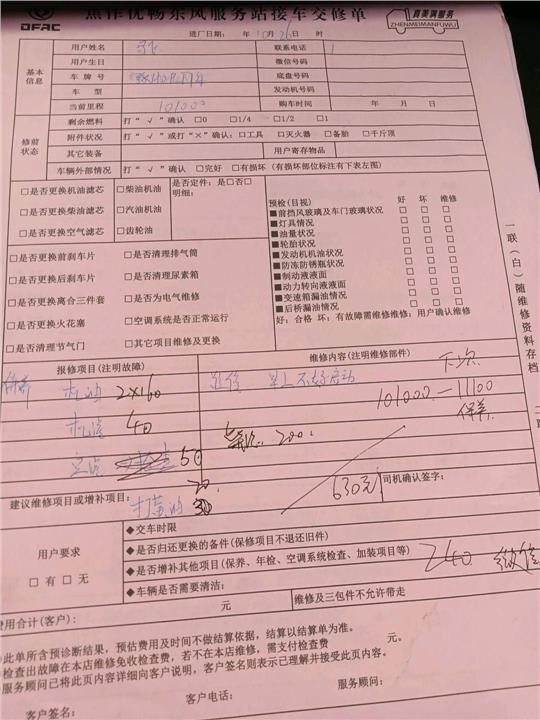 焦作优畅东风服务站接车交修单
DFAC
真美满服务
ZHENMEIMANFUWU
进厂日期: 年 10月 26日 时
基本信息
用户姓名 联系电话
用户生日 微信号码
车牌号 底盘号码
车型 发动机号码
当前里程 101000 购车时间 年 月 日
修前状态
剩余燃料 打"√"确认 □0 □1/4 □1/2 □1
附件状况 打"√"或打"×"确认:□工具 □灭火器 □备胎 □千斤顶
其它装备 用户寄存物品
车辆外部情况 打"√"确认 □完好 □有损坏(有损坏部位标注有下表左图)
□是否更换机油滤芯 □柴油机油 是否定件:是□否□
明细:
□是否更换柴油滤芯 □汽油机油
□是否更换空气滤芯 □齿轮油
□是否更换前刹车片 □是否清理排气筒
□是否更换后刹车片 □是否清理尿素箱
□是否更换离合三件套 □是否为电气维修
□是否更换火花塞 □空调系统是否正常运行
□是否清理节气门 □其它项目维修及更换
预检(目视) 好 坏 维修
■前挡风玻璃及车门玻璃状况 □ □ □
■灯具情况 □ □ □
■油量状况 □ □ □
■轮胎状况 □ □ □
■发动机机油状况 □ □ □
■防冻防锈瓶状况 □ □ □
■制动液液面 □ □ □
■动力转向液液面 □ □ □
■变速箱漏油情况 □ □ □
■后桥漏油情况 □ □ □
好:合格 坏:有故障需维修维修:用户确认维修
一联(白)随维修资料存档
报修项目(注明故障) 维修内容(注明维修部件) 下次
保养 机油 2×160 早上不好启动
101000—11100
保养
机滤 40
200.
50
20.
建议维修项目或增补项目: 打黄油 30
630元
司机确认签字:
用户要求
□有 □无
◆交车时限
◆是否归还更换的备件(保修项目不退还旧件)
◆是否增补其他项目(保养、年检、空调系统检查、加装项目等)
240 微信
◆车辆是否需要清洁:
费用合计(客户): 元 维修及三包件不允许带走
此单所含预诊断结果,预估费用及时间不做结算依据,结算以结算单为准。
检查出故障在本店维修免收检查费,若不在本店维修,需支付检查费 元。
服务顾问已将此页内容详细向客户说明,客户签名则表示已理解并接受此页内容。
客户签名: 客户电话: 服务顾问: